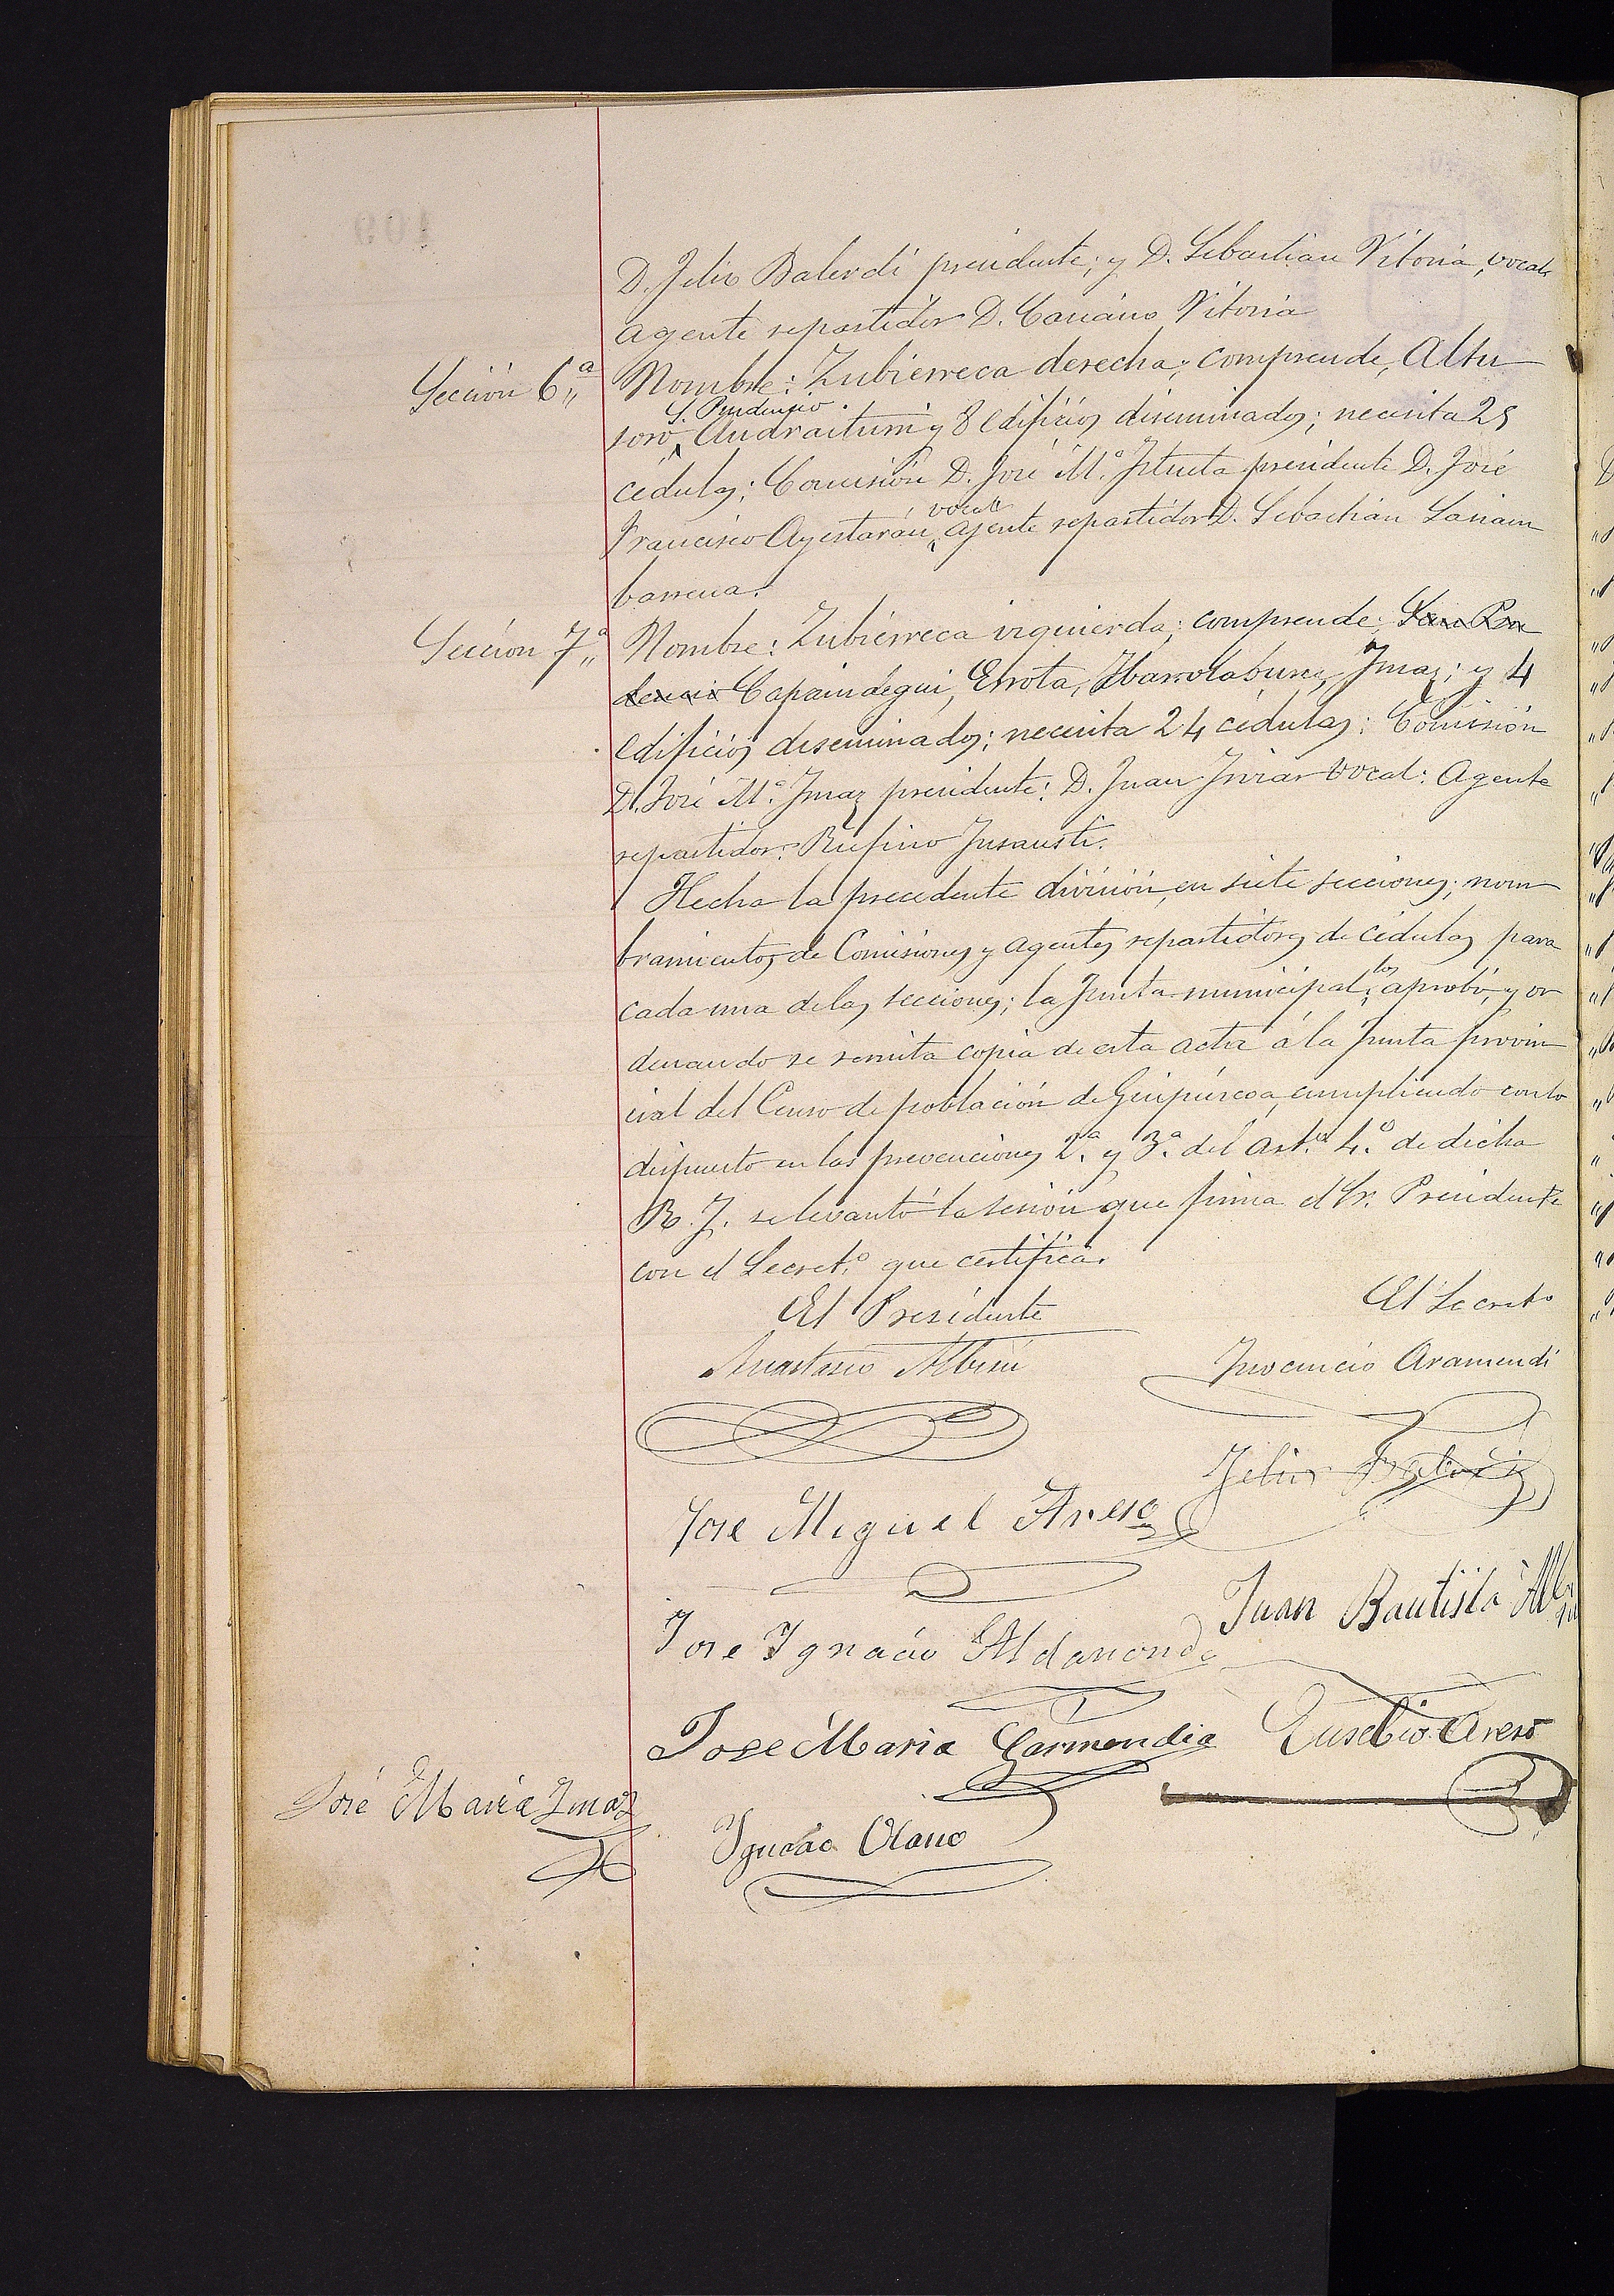 D. Felix Balerdi presidente; y D. Sebastian Vitoria, vocal,
agente repartidor D. Casiano Vitoria
Sección 6ª
Nombre: Zubierreca derecha; comprende, Altu
S. Prudencio
soro, Andraitum y 8 edificios diseminados; necesita 25
cédulas; Comisión D. José Mª. Iztueta presidente D. José
vocal
Francisco Ayestarán, agente repartidor D. Sebastian Sariam
barrena.
Sección 7ª
Nombre: Zubierreca izquierda; comprende: San Pru
dencio Capaindegui, Errota, Ibarrolaburu, Imaz; y 4
edificios diseminados; necesita 24 cédulas: Comisión
D. José Mª. Imaz presidente: D. Juan Iriar vocal: Agente
repartidor: Rufino Insausti.
Hecha la precedente división, en siete secciones; nom
bramientos de Comisiones y agentes repartidores de cédulas para
los
cada una de las secciones; la Junta municipal, aprobó, y or
denando se remita copia de esta acta á la Junta provin
cial del Censo de población de Guipúscoa, cumpliendo con lo
dispuesto en las prevenciones 2.ª y 3.ª del art.º 4.º de dicha
R. J. se levantó la sesión que firma el Sr. Presidente
con el Secret.º que certifica.
El Presidente
El Secreto
Anastasio Albisu
Inocencio Aramendi
Felix Balerdi
Jose Miguel Areso
Juan Bautista Albisu
Jose Ignacio Aldanondo
Jose Maria Garmendia
Eusebio Areso
José Maria Imaz
Ignacio Olano